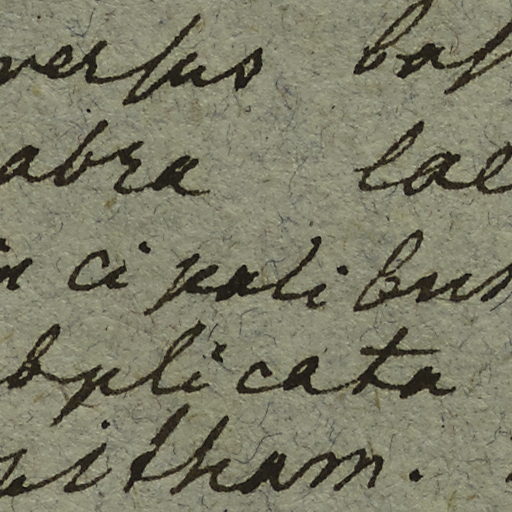 versus bas
abra lae
in cipalibus
bplicata
uitham.